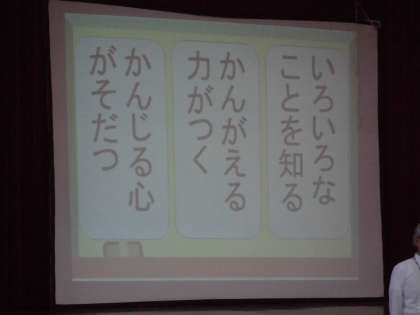 いろいろな
ことを知る
かんがえる
力がつく
かんじる心
がそだつ